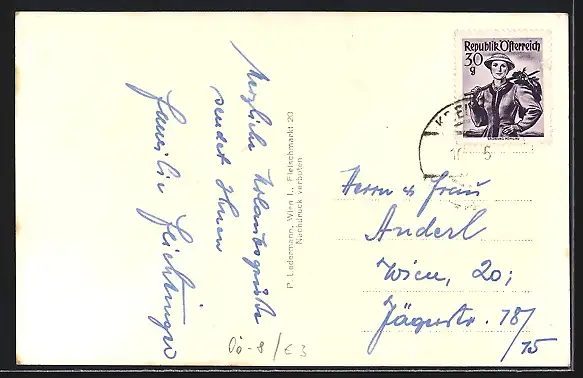 Herzliche Urlaubsgrüße
sendet Ihnen
Familie
P. Ledermann, Wien I., Fleischmarkt 20
Nachdruck verboten
Republik Österreich
30
g
10 5
Herrn & Frau
Anderl
Wien, 20;
Jägerstr. 78/
15
Oö-8/€3